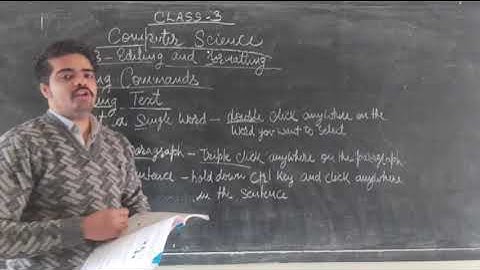 CLASS-3
Computer Science
3 - Editing and Formatting
Commands
Text
a Single Word - double click anywhere on the
word you want to select
Paragraph - Triple click anywhere on the paragraph
Sentence - hold down Ctrl Key and click anywhere
in the sentence